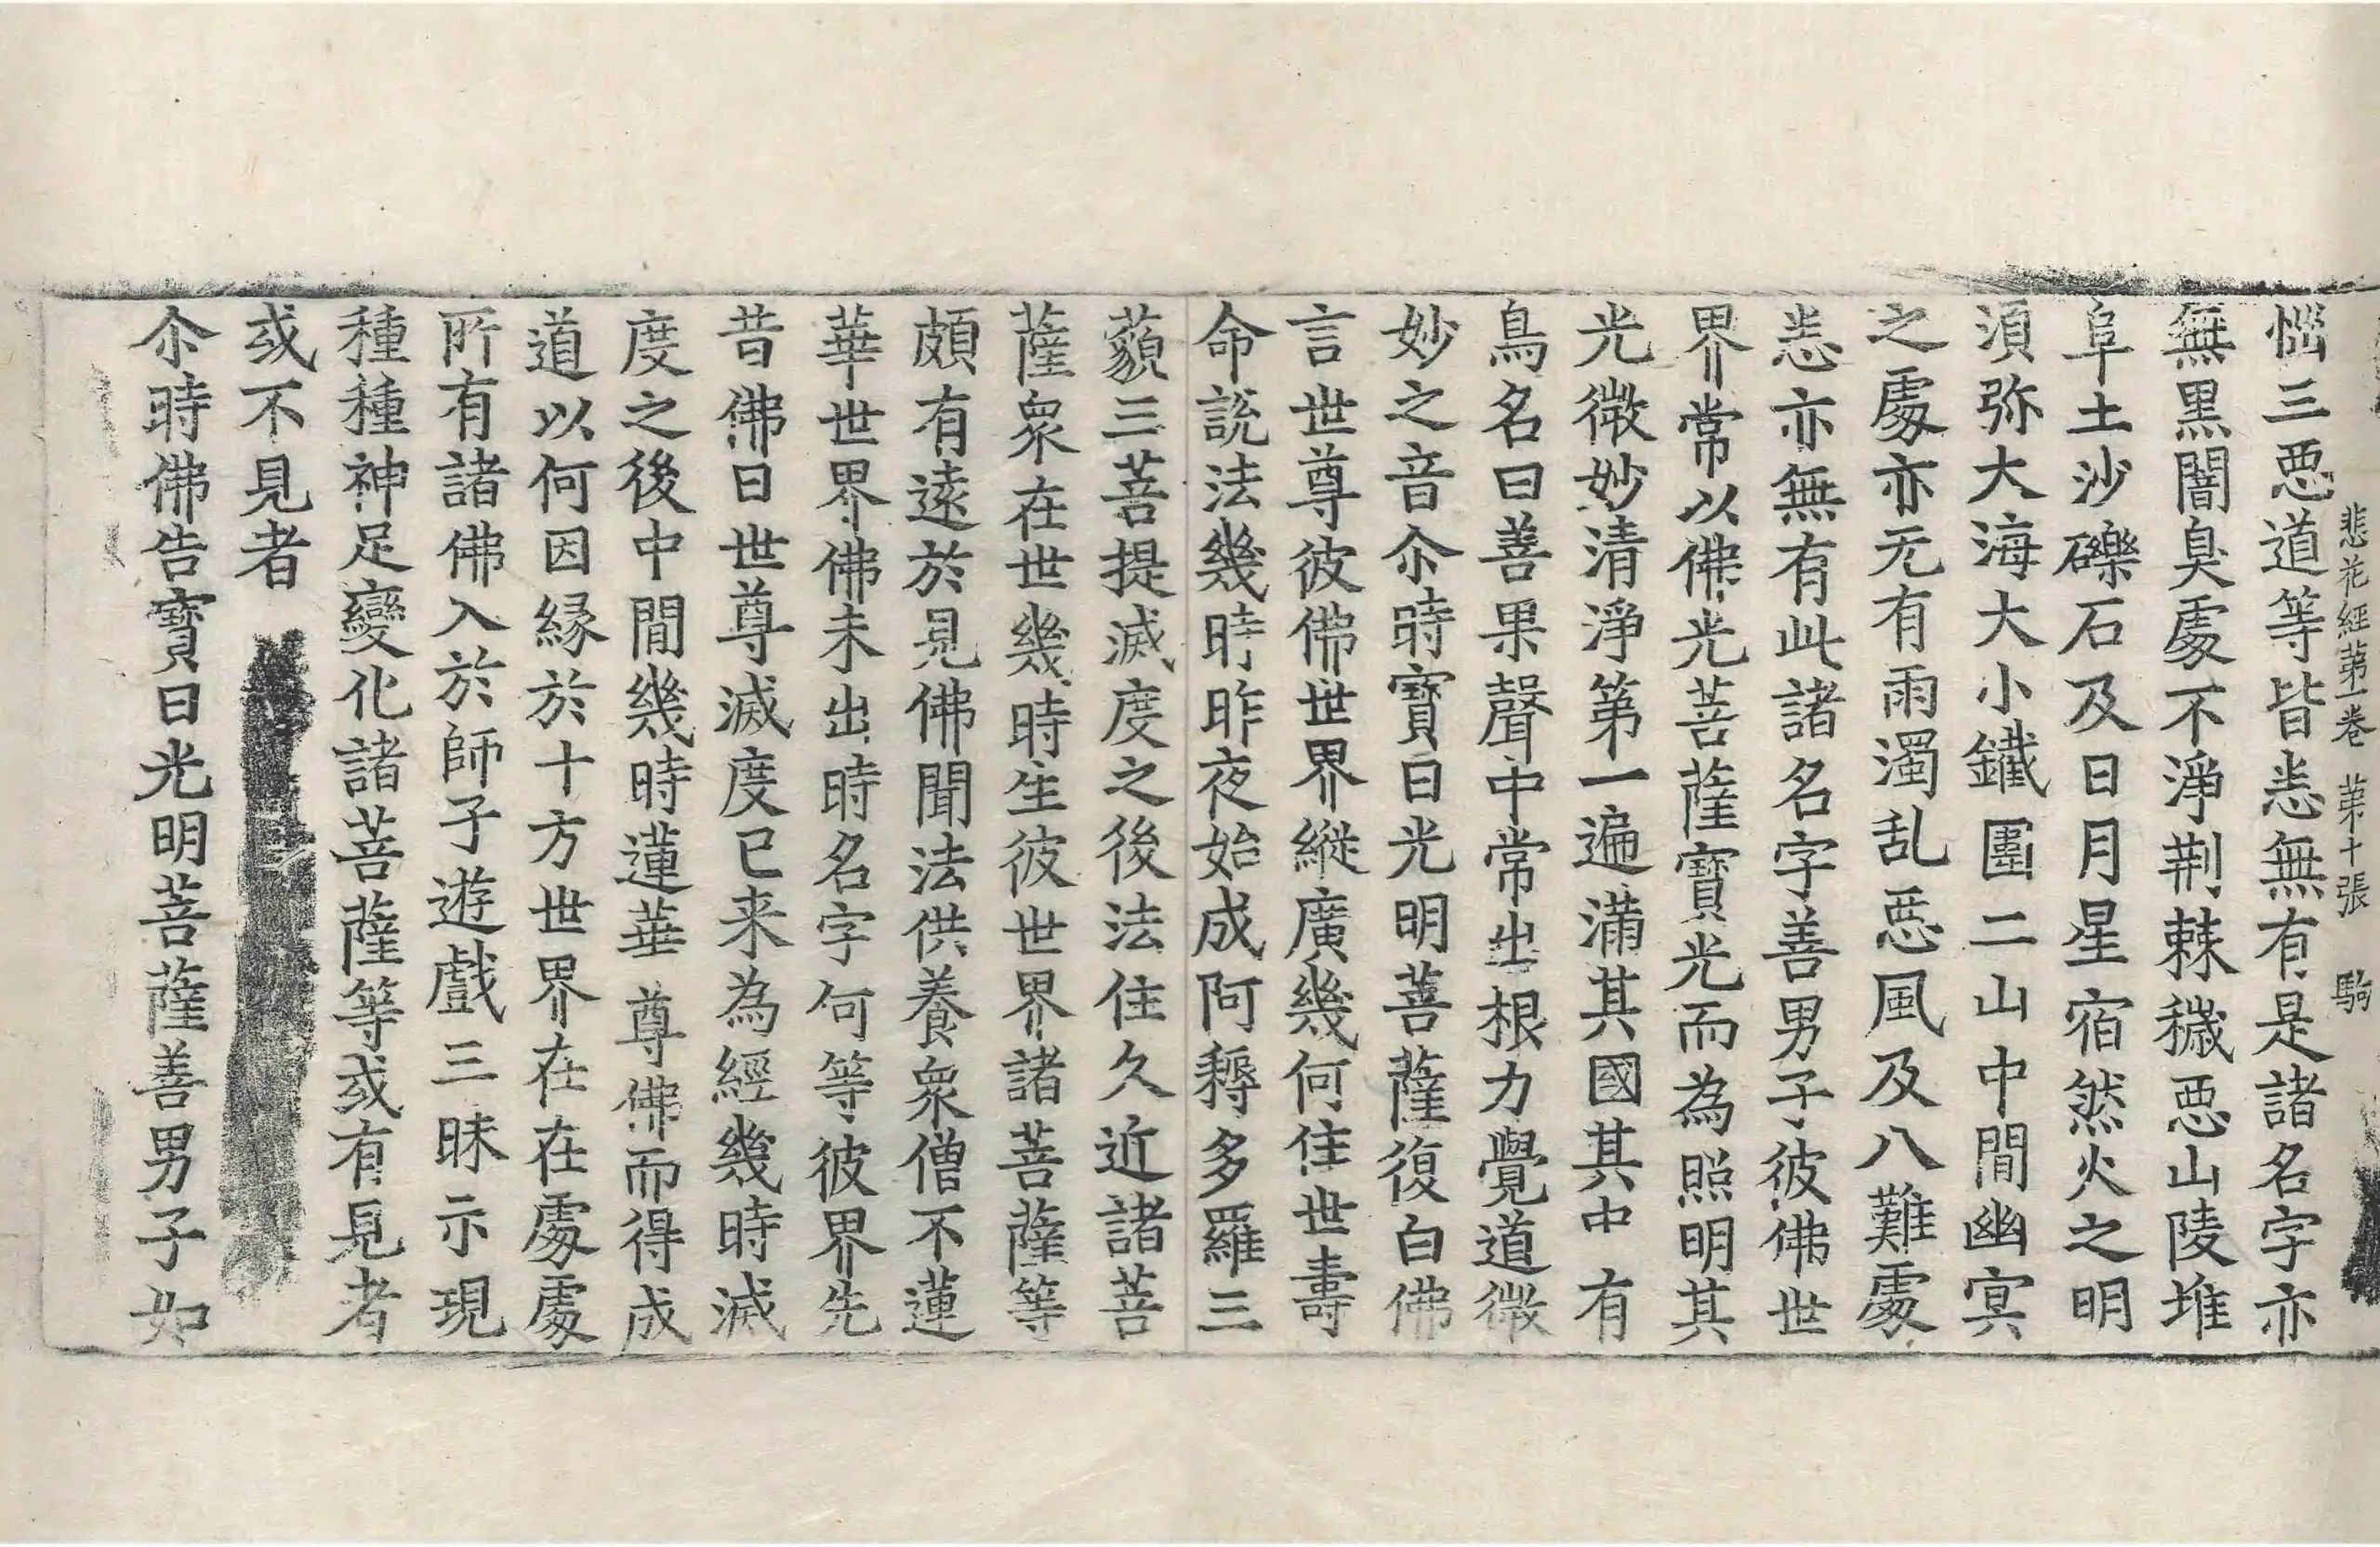 悲花經第一卷 第十張 駒
惱三惡道等皆悉無有是諸名字亦
無黑闇臭處不淨荆棘穢惡山陵堆
阜土沙礫石及日月星宿然火之明
湏弥大海大小鐵圍二山中閒幽冥
之處亦无有雨濁乱惡風及八難處
悉亦無有此諸名字善男子彼佛世
界常以佛光菩薩寶光而為照明其
光微妙清淨第一遍滿其國其中有
鳥名曰善果聲中常出根力覺道微
妙之音尒時寶日光明菩薩復白佛
言世尊彼佛世界縱廣幾何住世壽
命說法幾時昨夜始成阿耨多羅三
藐三菩提滅度之後法住久近諸菩
薩衆在世幾時生彼世界諸菩薩等
頗有遠於見佛聞法供養衆僧不蓮
華世界佛未出時名字何等彼界先
昔佛日世尊滅度已来為經幾時滅
度之後中閒幾時蓮華尊佛而得成
道以何因緣於十方世界在在處處
所有諸佛入於師子遊戲三昧示現
種種神足變化諸菩薩等或有見者
或不見者
尒時佛告寶日光明菩薩善男子如